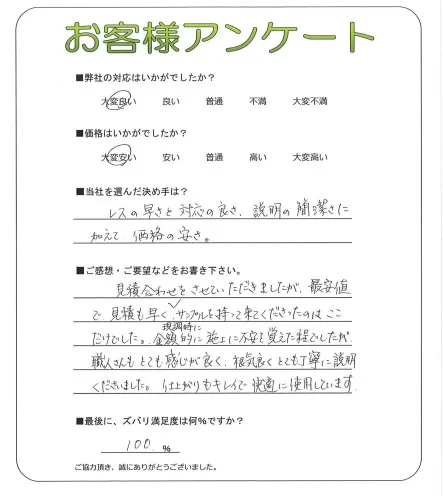 お客様アンケート
■弊社の対応はいかがでしたか?
大変良い 良い 普通 不満 大変不満
■価格はいかがでしたか?
大変安い 安い 普通 高い 大変高い
■当社を選んだ決め手は?
レスの早さと対応の良さ、説明の簡潔さに
加えて価格の安さ。
■ご感想・ご要望などをお書き下さい。
見積合わせをさせていただきましたが、最安値
で見積も早く、サンプルを持って来てくださったのはここ
現調時に
だけでした。金額的に施工に不安を覚えた程でしたが、
職人さんもとても感じが良く、根気良くとても丁寧に説明
くださいました。仕上がりもキレイで快適に使用しています
■最後に、ズバリ満足度は何%ですか?
100 %
ご協力頂き、誠にありがとうございました。